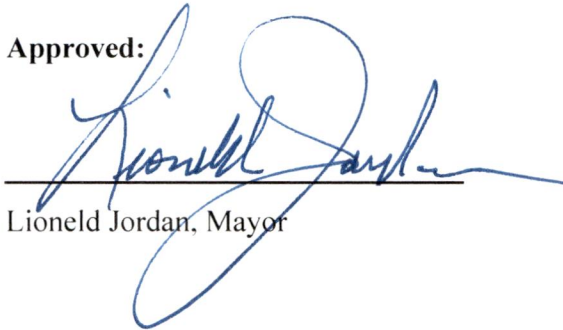 Approved:
Lioneld Jordan
Lioneld Jordan, Mayor